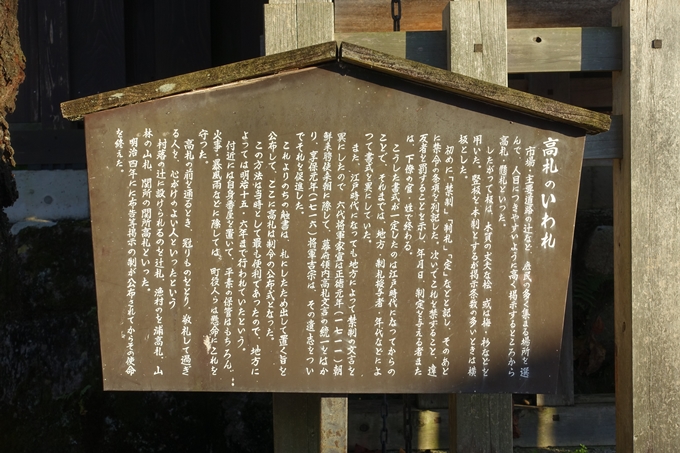 高札のいわれ
市場・主要道路の辻など、庶民の多く集まる場所を選
んで、人目につきやすいように高く掲示するところから
高札・懸札といった。
したがって札板は、木質の丈夫な桧、或は梅・杉などを
用いた。竪板を本制とするが掲示条数の多いときは横
板とした。
初めに、「禁制」、「制札」、「定」などと記し、そのあと
に禁令の条項を列記した。次いでこれを禁ずること、違
反者を罰することを示し、年月日・制定を与える者また
は、下僚の官・姓で終わる。
こうした書式が一定したのは江戸時代になってからの
ことで、それまでは、地方・制札授与者・年代などによ
って書式を異にしていた。
また、江戸時代になっても地方によって禁制の文言を
異にしたので、六代将軍家宣は正徳元年（一七一一）朝
鮮来聘使来朝に際して、幕府領内高札文言の統一をはか
り、享保元年（一七一六）将軍吉宗は、その遺志をつい
でそれを促進した。
これよりのちの触書は、札にしたため出して置く旨を
公布して、ここに高札は制令の公布式となった。
この方法は当時として最も便利であったので、地方に
よっては明治十五・六年まで行われていたという。
付近には自身番屋を置いて、平素の保管はもちろん、
火事・暴風雨などに際しては、町役人らは懸命にこれを
守った。
高札の前を通るとき、冠りものをとり、敬礼して過ぎ
る人を、心がけのよい人といったという
村落の辻に設けられるのを辻札、漁村のを浦高札、山
林の山札、関所の関所高札といった。
明治四年にに布告等掲示の制が公布されてからその使命
を終えた。